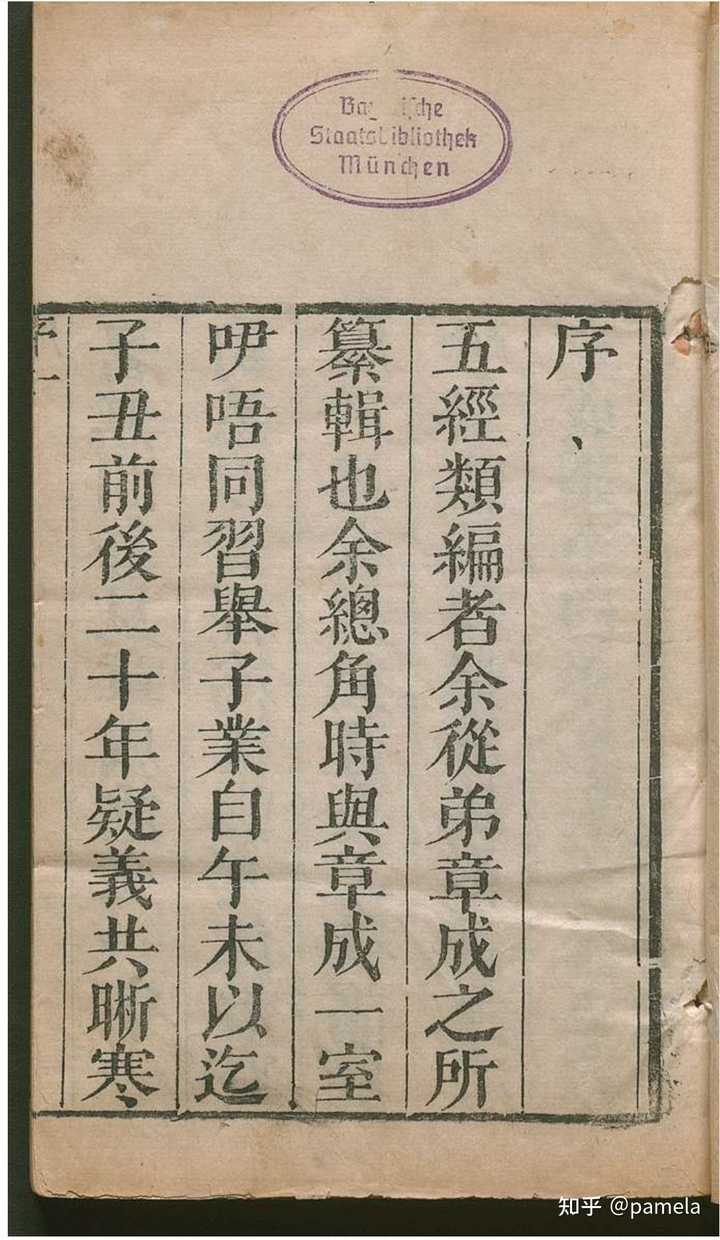 Bay ische
Staatsbibliothek
München
序
五經類編者余從弟章成之所
纂輯也余總角時與章成一室
咿唔同習舉子業自午未以迄
子丑前後二十年疑義共晰寒
序 一
知乎 @pamela